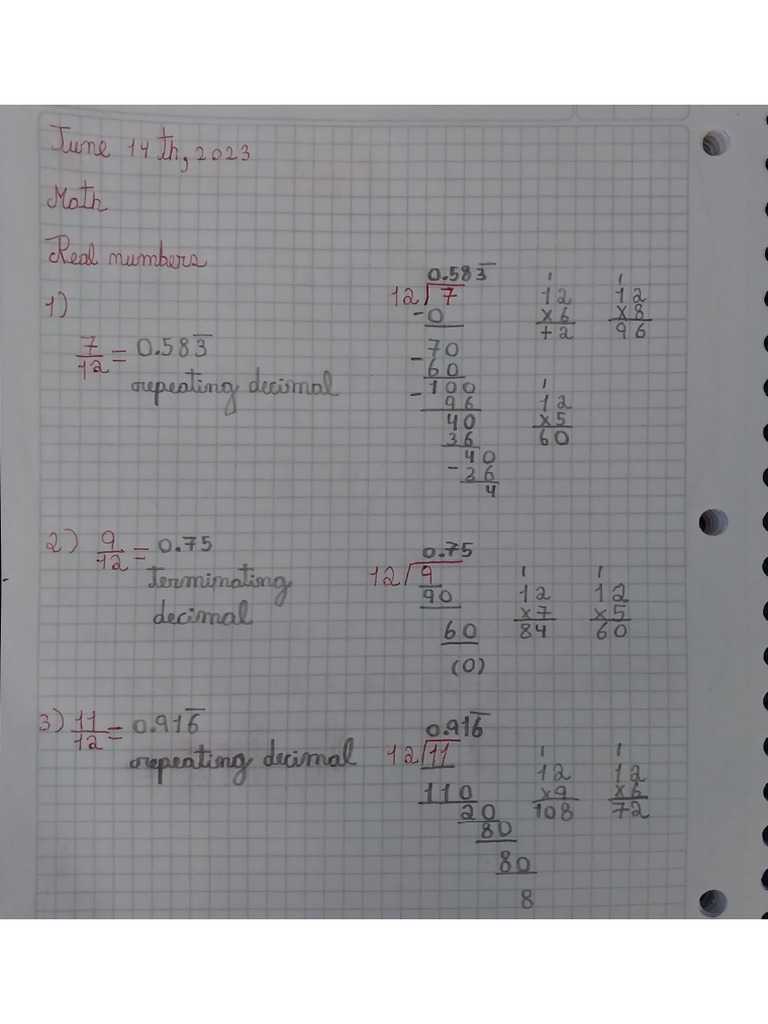 June 14th, 2023
Math
Real numbers
1)
7/12 = 0.583̅
repeating decimal
0.583̅
12√7
-0
70
-60
-100
96
40
36
40
-36
4
1
12
x6
72
1
12
x8
96
1
12
x5
60
2) 9/12 = 0.75
terminating
decimal
0.75
12√9
90
60
(0)
1
12
x7
84
1
12
x5
60
3) 11/12 = 0.916̅
repeating decimal
0.916̅
12√11
110
20
80
80
8
1
12
x9
108
1
12
x6
72